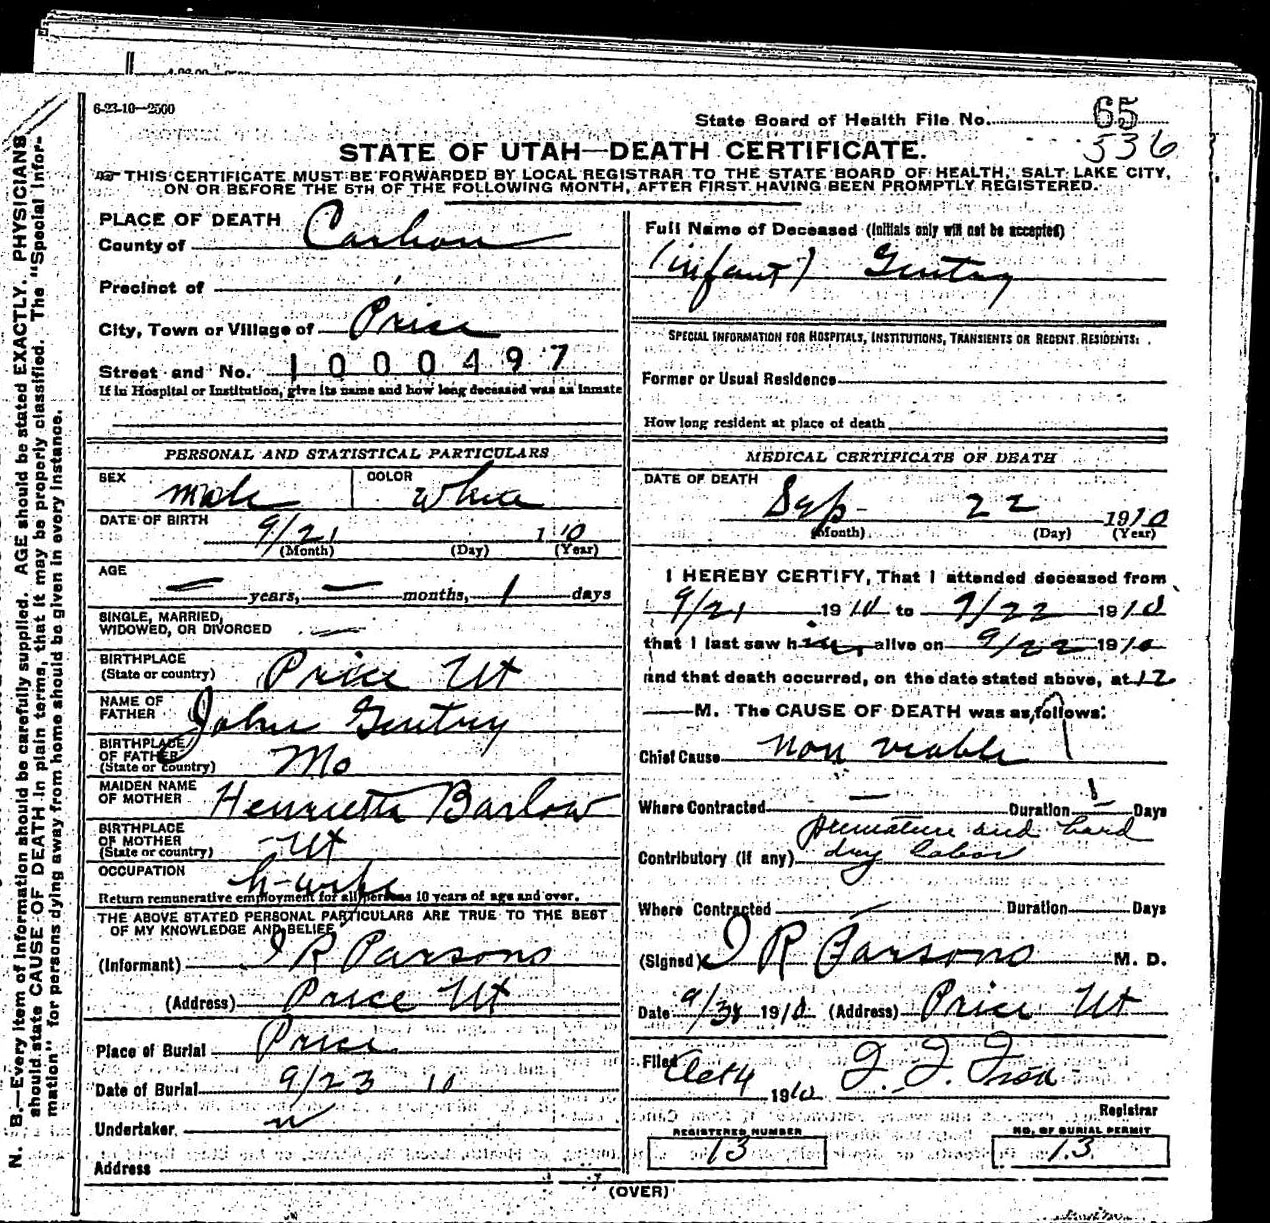 6-23-10—2500
State Board of Health File No. 65
536
STATE OF UTAH—DEATH CERTIFICATE.
THIS CERTIFICATE MUST BE FORWARDED BY LOCAL REGISTRAR TO THE STATE BOARD OF HEALTH, SALT LAKE CITY,
ON OR BEFORE THE 5TH OF THE FOLLOWING MONTH, AFTER FIRST HAVING BEEN PROMPTLY REGISTERED.
N. B.—Every item of information should be carefully supplied. AGE should be stated EXACTLY. PHYSICIANS
should state CAUSE OF DEATH in plain terms, that it may be properly classified. The "Special Infor-
mation" for persons dying away from home should be given in every instance.
PLACE OF DEATH
County of Carbon
Precinct of
City, Town or Village of Price
Street and No. 1000497
If in Hospital or Institution, give its name and how long deceased was an inmate
PERSONAL AND STATISTICAL PARTICULARS
SEX Male COLOR White
DATE OF BIRTH 9/21 1 10
(Month) (Day) (Year)
AGE
— years, — months, 1 days
SINGLE, MARRIED,
WIDOWED, OR DIVORCED —
BIRTHPLACE
(State or country) Price Ut
NAME OF
FATHER John Gentry
BIRTHPLACE
OF FATHER
(State or country) Mo
MAIDEN NAME
OF MOTHER Henrietta Barlow
BIRTHPLACE
OF MOTHER
(State or country) Ut
OCCUPATION h-wife
Return remunerative employment for all persons 10 years of age and over.
THE ABOVE STATED PERSONAL PARTICULARS ARE TRUE TO THE BEST
OF MY KNOWLEDGE AND BELIEF
(Informant) J R Parsons
(Address) Price Ut
Place of Burial Price
Date of Burial 9/23 10
Undertaker
Address
Full Name of Deceased (Initials only will not be accepted)
(infant) Gentry
SPECIAL INFORMATION FOR HOSPITALS, INSTITUTIONS, TRANSIENTS OR RECENT RESIDENTS:
Former or Usual Residence
How long resident at place of death
MEDICAL CERTIFICATE OF DEATH
DATE OF DEATH
Sep 22 1910
(Month) (Day) (Year)
I HEREBY CERTIFY, That I attended deceased from
9/21 1910 to 9/22 1910
that I last saw him alive on 9/22 1910
and that death occurred, on the date stated above, at 12
— M. The CAUSE OF DEATH was as follows:
Chief Cause non viable
Where Contracted — Duration 1 Days
premature and hard
Contributory (if any) dry labor
Where Contracted — Duration Days
(Signed) J R Parsons M. D.
Date 9/ 1910 (Address) Price Ut
Filed Oct 4 1910
Registrar
REGISTERED NUMBER
13
NO. OF BURIAL PERMIT
13
(OVER)